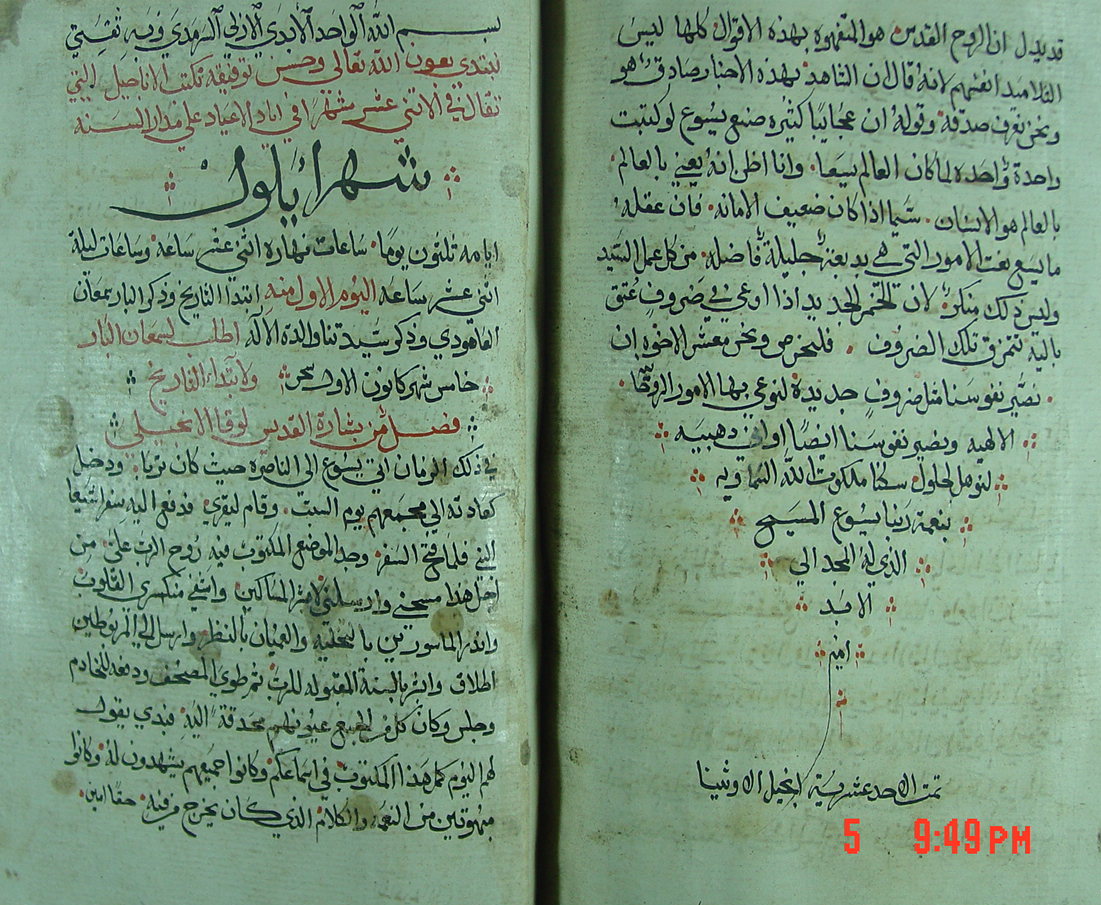 قد يدل ان الروح القدس هو المتفوه بهذه الاقوال كلها ليس
التلاميد انفسهم لانه قال ان الشاهد بهده الاخبار صادق هو
ونحن نعرف صدقه وقوله ان عجايبا كثيره صنع يسوع لو كتبت
واحدة واحده لما كان العالم يسعها وانا اظن انه يعني بالعالم
بالعالم هو الانسان سيما اذا كان ضعيف الامانه فان عقله
ما يسع نعت الامور التي هي بديعة جليلة فاضله من كل عمل السيد
وليس دلك منكر لان الخمر الجديد اذا اوعي في ضروف عتق
باليه تتمزق تلك الضروف فلنحرص ونحن معشر الاخوه ان
نصير نفوسنا مثل ضروف جديدة لنوعي بها الامور
الالهيه ونصير نفوسنا ايضا اواني دهبيه
لنوهل لحلول سكنا ملكوت الله السماويه
بنعمة ربنا يسوع المسيح
الذي له المجد الي
الابد
امين
تمت الاحد عشريه انجيل الاوثينا
بسم الله الواحد الابدي الازلي السرمدي وبه ثقتي
نبتدي بعون الله تعالي وحسن توفيقه نكتب الاناجيل التي
تقال في الاثني عشر شهرا في اياد الاعياد علي مدار السنه
شهر ايلول
ايامه تلتون يوما ساعات نهاره اثني عشر ساعه وساعات ليلة
اثني عشر ساعه اليوم الاول منه ابتدا التاريخ وذكر البار سمعان
العاهودي وذكر سيدتنا والدة الاله اطلب لسمعان البار
خامس شهر كانون الاول سحر ولابتداء التاريخ
فصل من بشارة القديس لوقا الانجيلي
في ذلك الزمان اتي يسوع الي الناصرة حيث كان تربا ودخل
كعادته الي مجمعهم يوم السبت وقام ليقري فدفع اليه سفر اشعيا
النبي فلما فتح السفر وجد الموضع المكتوب فيه روح الرب علي من
اجل هدا مسحني وارسلني لابشر المساكين واشفي منكسري القلوب
واندر الماسورين بالتخليه والعميان بالنظر وارسل الي المربوطين
اطلاق وابشر بالسنة المقبوله للرب تم طوي المصحف ودفعه للخادم
وجلس وكان كل من في المجمع عيونهم محدقة اليه فبدي يقول
لهم اليوم كمل هذا المكتوب في اسماعكم وكانوا جميعهم يشهدون له وكانوا
مبهوتين من النعمه والكلام الذي كان يخرج من فيه حقا امين
5 9:49 PM